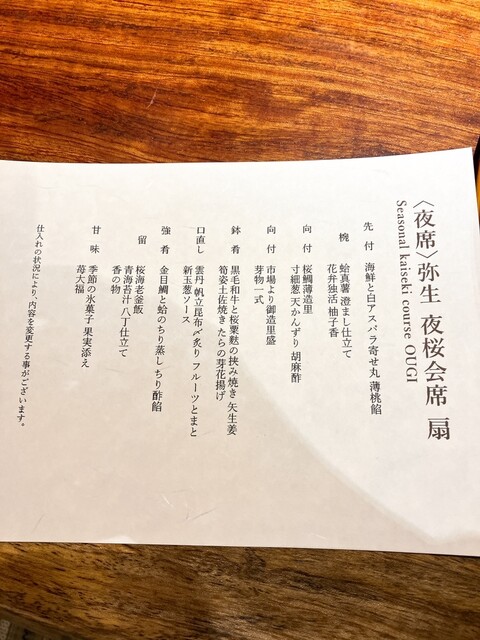 〈夜席〉弥生 夜桜会席 扇
Seasonal kaiseki course OUGI
先 付 海鮮と白アスパラ寄せ丸 薄桃餡
椀 蛤真薯 澄まし仕立て
花弁独活 柚子香
向 付 桜鯛薄造里
寸細葱 天かんずり 胡麻酢
向 付 市場より御造里盛
芽物一式
鉢 肴 黒毛和牛と桜粟麩の挟み焼き 矢生姜
筍姿土佐焼き たらの芽花揚げ
口直し 雲丹 帆立昆布〆炙り フルーツとまと
新玉葱ソース
強 肴 金目鯛と蛤のちり蒸し ちり酢餡
留 桜海老釜飯
青海苔汁 八丁仕立て
香の物
甘 味 季節の氷菓子 果実添え
苺大福
仕入れの状況により、内容を変更する事がございます。